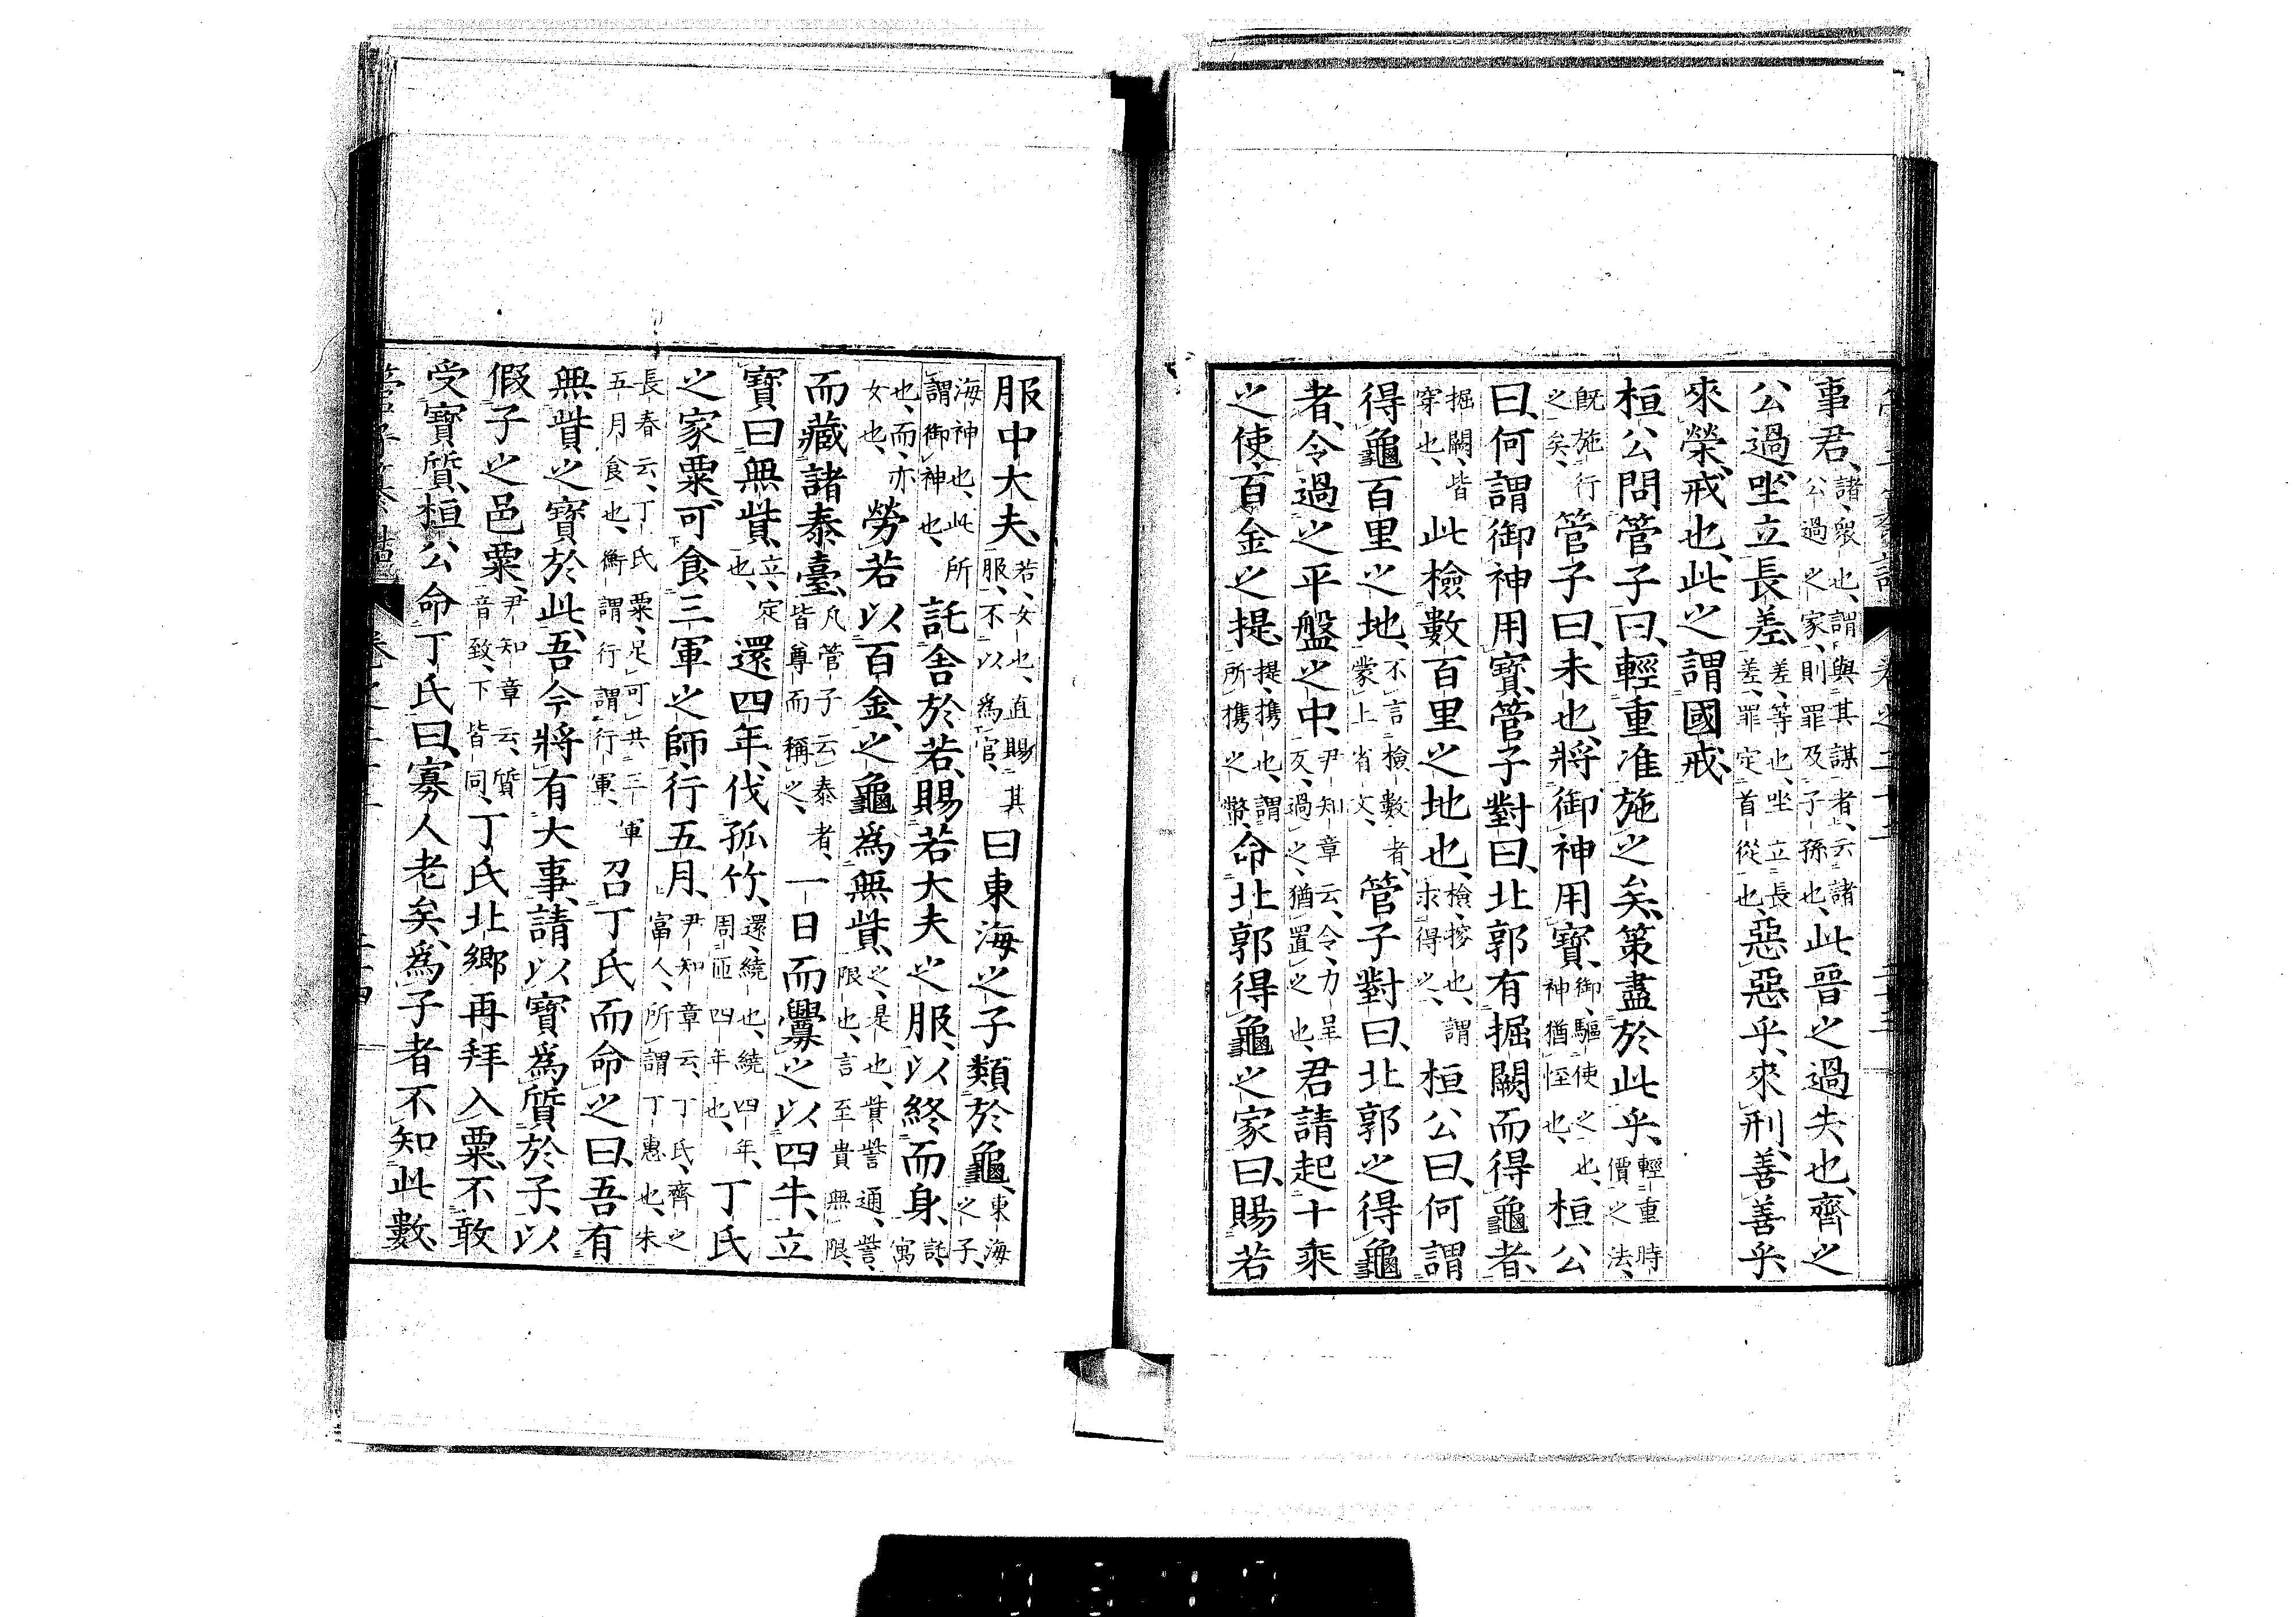 事君、諸、衆也、謂與其謀者、云諸公過之家、則罪及子孫也、此晉之過失也、齊之
公過坐立長差、差、等也、坐立長差、罪定首從也、惡惡乎、來刑、善善乎、
來榮、戒也、此之謂國戒、
桓公問管子曰、輕重准施之矣、策盡於此乎、輕重時價之法、
既施行之矣、管子曰、未也、將御神用寶、御、驅使之也、神猶怪也、桓公
曰、何謂御神用寶、管子對曰、北郭有掘闕而得龜者、
掘闕、皆穿也、此檢數百里之地也、檢、挍也、謂求得之、桓公曰、何謂
得龜百里之地、不言檢數者、蒙上省文、管子對曰、北郭之得龜
者、令過之平盤之中、尹知章云、令、力呈反、過之、猶置之也、君請起十乘
之使、百金之提、提、携也、謂所携之幣、命北郭得龜之家曰、賜若
服中大夫、若、女也、直賜其服、不以爲官、曰東海之子類於龜、東海之子、
海神也、此所謂御神也、託舍於若、賜若大夫之服、以終而身、託、寓
也、而、亦女也、勞若以百金、之龜爲無貲、之、是也、貲訾通、訾、限也、言至貴無限、
而藏諸泰臺、凡管子云泰者、皆尊而稱之、一日而釁之以四牛、立
寶曰無貲、立、定也、還四年、伐孤竹、還、繞也、繞四年、周匝四年也、丁氏
之家粟、可食三軍之師、行五月、尹知章云、丁氏、齊之富人、所謂丁惠也、朱
長春云、丁氏粟、足可共三軍五月食也、衡謂行謂行軍、召丁氏而命之曰、吾有
無貲之寶於此、吾今將有大事、請以寶爲質於子、以
假子之邑粟、尹知章云、質音致、下皆同、丁氏北鄉再拜入粟、不敢
受寶質、桓公命丁氏曰、寡人老矣、爲子者不知此數、